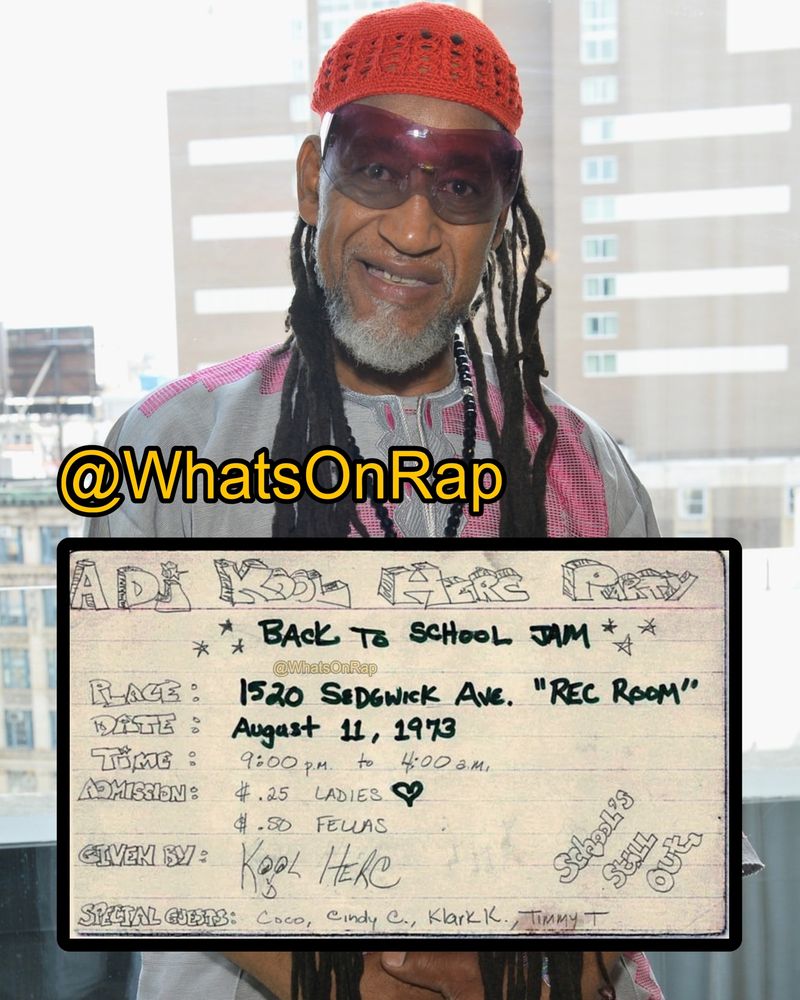 @WhatsOnRap
A DJ KOOL HERC PARTY
BACK TO SCHOOL JAM
@WhatsOnRap
PLACE: 1520 SEDGWICK AVE. "REC ROOM"
DATE: August 11, 1973
TIME: 9:00 p.m. to 4:00 a.m.
ADMISSION: $.25 LADIES ♥
$.50 FELLAS
GIVEN BY: KOOL HERC
School's
Still
Out
SPECIAL GUESTS: Coco, Cindy C., KlarK K., Timmy T